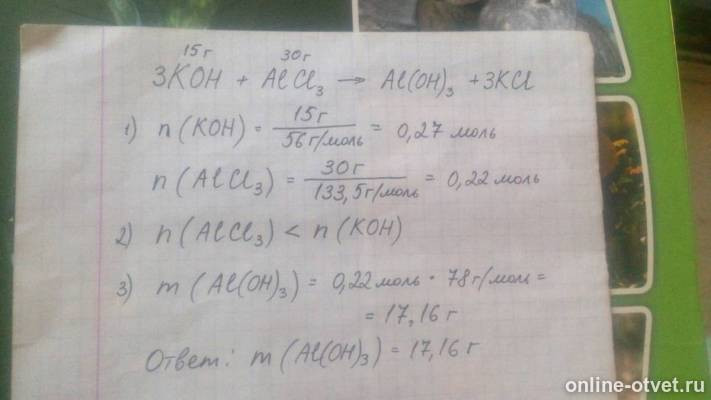 15г 30г
3KOH + AlCl₃ → Al(OH)₃ + 3KCl
1) n(KOH) = 15г / 56 г/моль = 0,27 моль
n(AlCl₃) = 30г / 133,5г/моль = 0,22 моль
2) n(AlCl₃) < n(KOH)
3) m(Al(OH)₃) = 0,22 моль · 78 г/моль =
= 17,16 г
Ответ: m(Al(OH)₃) = 17,16 г
online-otvet.ru